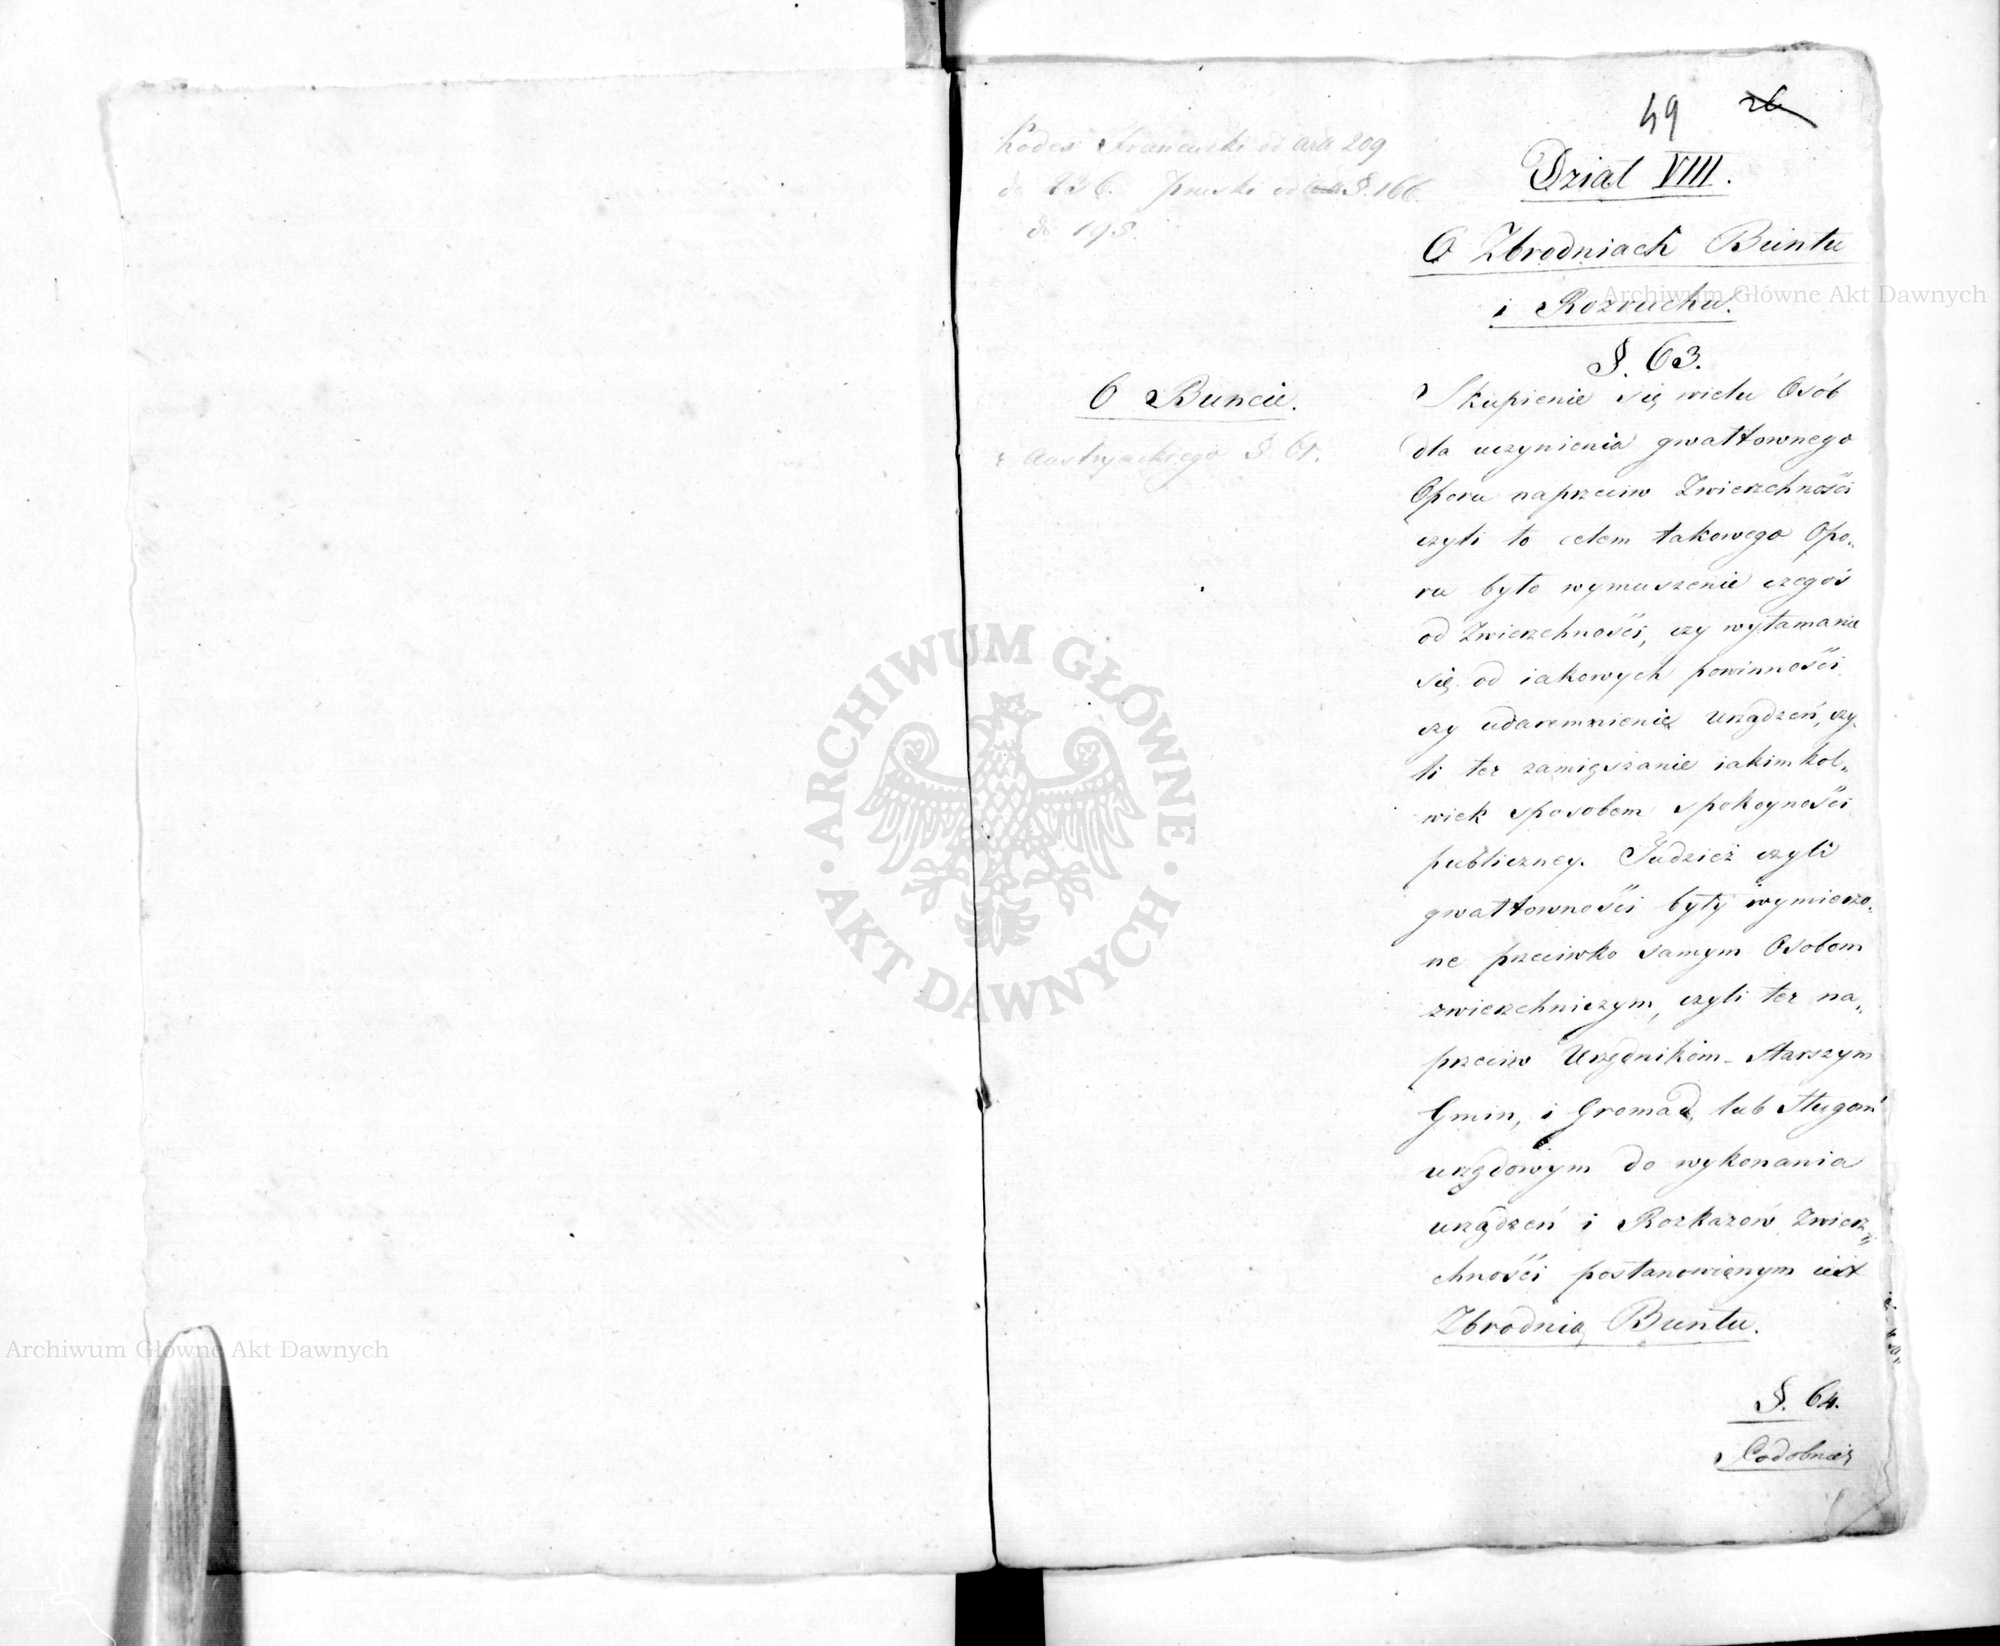 49 26
Kodex Francuski od art 209
do 236. pruski od §. 166.
do 195.
Dział VIII.
O Zbrodniach Buntu
i Rozruchu.
§. 63.
O Buncie.
z Austryackiego § 61.
Skupienie się wielu Osób
dla uczynienia gwałtownego
Oporu naprzeciw Zwierzchności
czyli to celem takowego Opo„
ru było wymuszenie czegoś
od Zwierzchności, czy wyłamanie
się od iakowych powinności
czy udaremnienie urządzeń, czy„
li tez zamięszanie iakimkol„
wiek sposobem spokoyności
publiczney. Tudzież czyli
gwałtowności były wymierzo„
ne przeciwko samym Osobom
zwierzchniczym, czyli tez na„
przeciw Urzędnikom Starszym
Gmin, i Gromad, lub Sługom
urzędowym do wykonania
urządzeń i Rozkazów Zwierz„
chności postanowionym iest
Zbrodnią Buntu.
§. 64.
Podobnież
Archiwum Główne Akt Dawnych
ARCHIWUM GŁÓWNE AKT DAWNYCH
Archiwum Główne Akt Dawnych